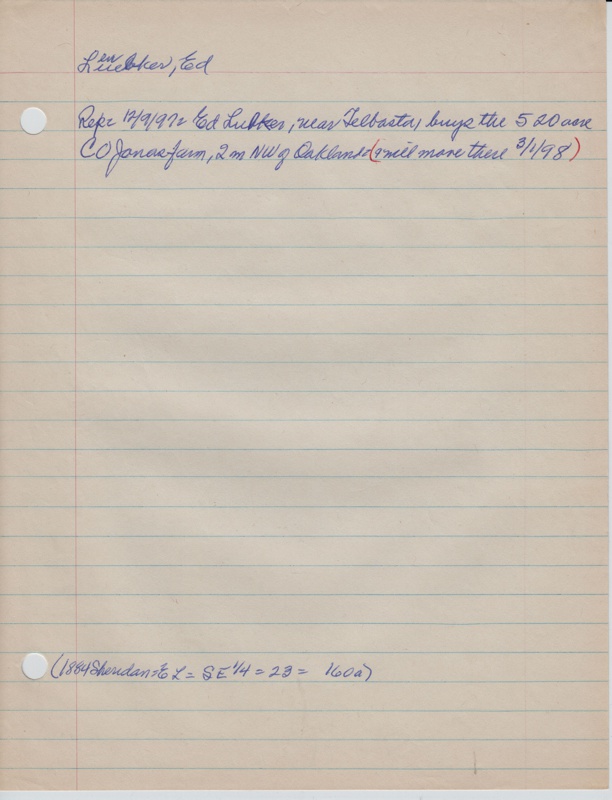 Luebker, Ed
Rep: 12/9/97: Ed Lubker, near Telbasta, buys the 520 acre
CO Jonas farm, 2 m NW of Oakland (& will move there 3/1/98)
(1884 Sheridan = E L = SE 1/4 = 23 = 160a)